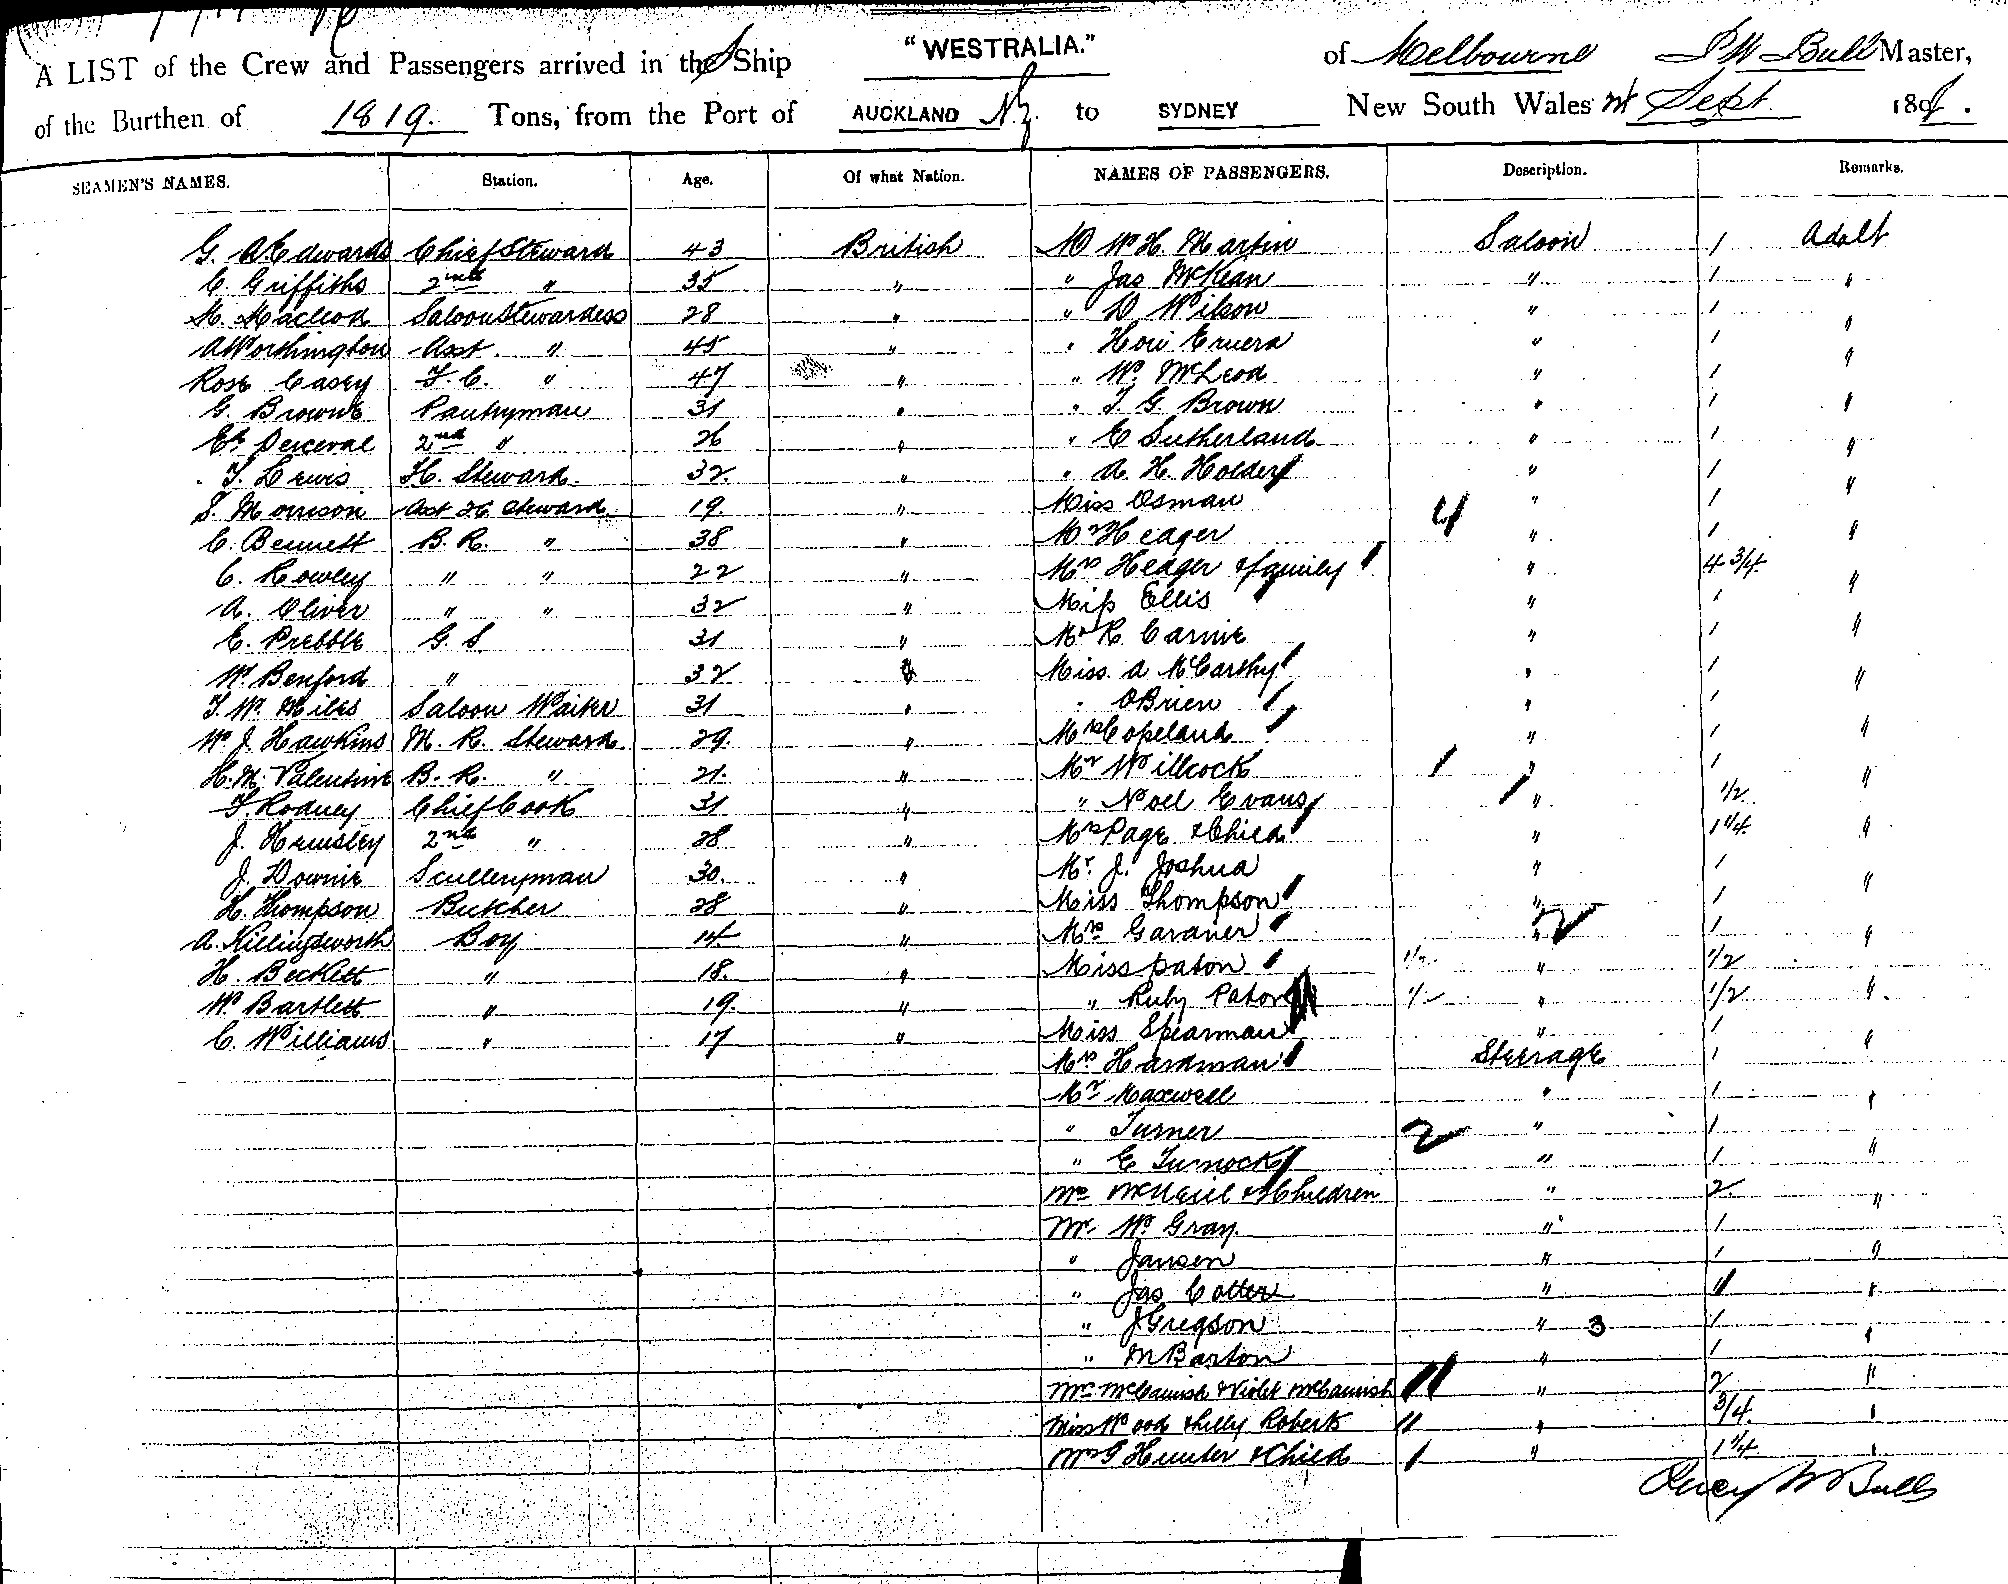 A LIST of the Crew and Passengers arrived in the S Ship "WESTRALIA." of Melbourne P W Bull Master,
of the Burthen of 1819. Tons, from the Port of AUCKLAND N.Z. to SYDNEY New South Wales Sept. 189
SEAMEN'S NAMES. Station. Age. Of what Nation. NAMES OF PASSENGERS. Description. Remarks.
G. A Edwards Chief Steward 43 British W. H. Martin Saloon 1 Adult
C. Griffiths 2nd " 35 " " Jas McKean " 1 "
M. Macleod Saloon Stewardess 28 " " D Wilson " 1
A Worthington Asst. " 45 " " Eruera " 1 "
Rose Casey F.C. " 47 " " W. McLeod " 1 "
G. Browne Pantryman 31 " " T G Brown " 1 "
Ed. Perceval 2nd " 26 " " E Sutherland " 1 "
T. Lewis H. Steward. 32. " " A. H. Holder " 1
S. Morrison Asst H Steward. 19. " Miss Osman " 1 "
C. Bennett B. R. " 38 " Mr Heager " 1 "
C. Rowley " " 22 " Mrs Heager & family " 4 3/4
A. Oliver " " 32 " Miss Ellis " 1 "
E. Prebble G. S. 31 " Mr R. Carnie " 1 "
W. Benford " 32 " Miss. A McCarthy " 1 "
T. W. Miles Saloon Waiter 31 " " OBrien " 1
W. J. Hawkins M. R. Steward. 29. " Mrs Copeland " 1 "
H. M. Valentine B. R. " 21. " Mr Willcock " 1 "
F. Rodney Chief Cook 31 " " Noel Evans " 1/2
J. Hemsley 2nd " 28 " Mrs Page & Child " 1 1/4 "
J. Downie Sculleryman 30. " Mr. J. Joshua " 1
H. Thompson Butcher 28 " Miss Thompson " 1 "
A. Killingsworth Boy 14 " Mrs Gardner " 2 1 "
H. Beckett " 18. " Miss Paton 1/2 " 1/2
W. Bartlett " 19. " " Ruby Paton " 1/2 "
C. Williams " 17 " Miss Spearman " 1
Mrs Hardman Steerage 1 "
Mr Maxwell " 1 "
" Turner 2 " 1
" E Turnock " 1 "
Mrs McNeil & Children " 2 "
Mr W. Gray. " 1
" Jansen " 1 "
" Jas Cotter " 1 "
" J Gregson " 3 1
" M Barton " 1 "
Mrs McCamish & Violet McCamish " 2 "
Miss Wood & Lilly Roberts " 3/4 "
Mrs G Hunter & Child " 1 1/4 "
Percy W Bull